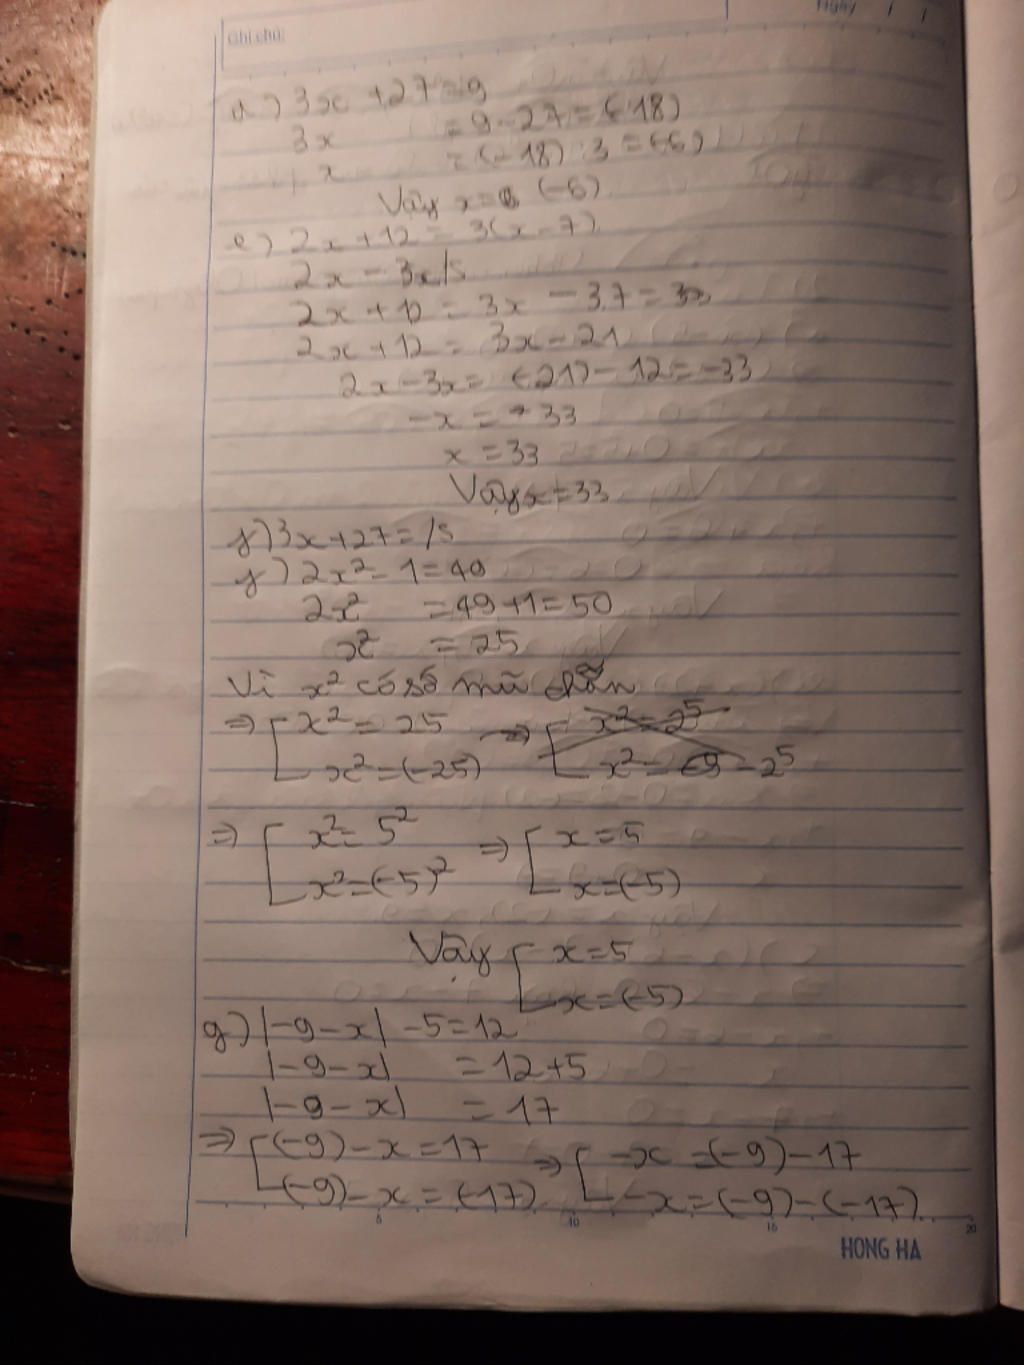 Ghi chú:
Ngày / /
d) 3x + 27 = 9
3x = 9 - 27 = (-18)
x = (-18) : 3 = (-6)
Vậy x = (-6)
e) 2x + 12 = 3(x - 7)
2x - 3x /s
2x + 12 = 3x - 3.7 =
2x + 12 = 3x - 21
2x - 3x = (-21) - 12 = -33
-x = -33
x = 33
Vậy x = 33
f) 3x + 27 = /s
f) 2x² - 1 = 49
2x² = 49 + 1 = 50
x² = 25
Vì x² có số mũ chẵn
⇒ [ x² = 25 ⇒ [ x² = 2⁵
x² = (-25) x² = - 2⁵
⇒ [ x² = 5² ⇒ [ x = 5
x² = (-5)² x = (-5)
Vậy [ x = 5
x = (-5)
g) |-9 - x| - 5 = 12
|-9 - x| = 12 + 5
|-9 - x| = 17
⇒ [ (-9) - x = 17 ⇒ [ -x = (-9) - 17
(-9) - x = (-17) -x = (-9) - (-17)
5 10 15 20
HONG HA